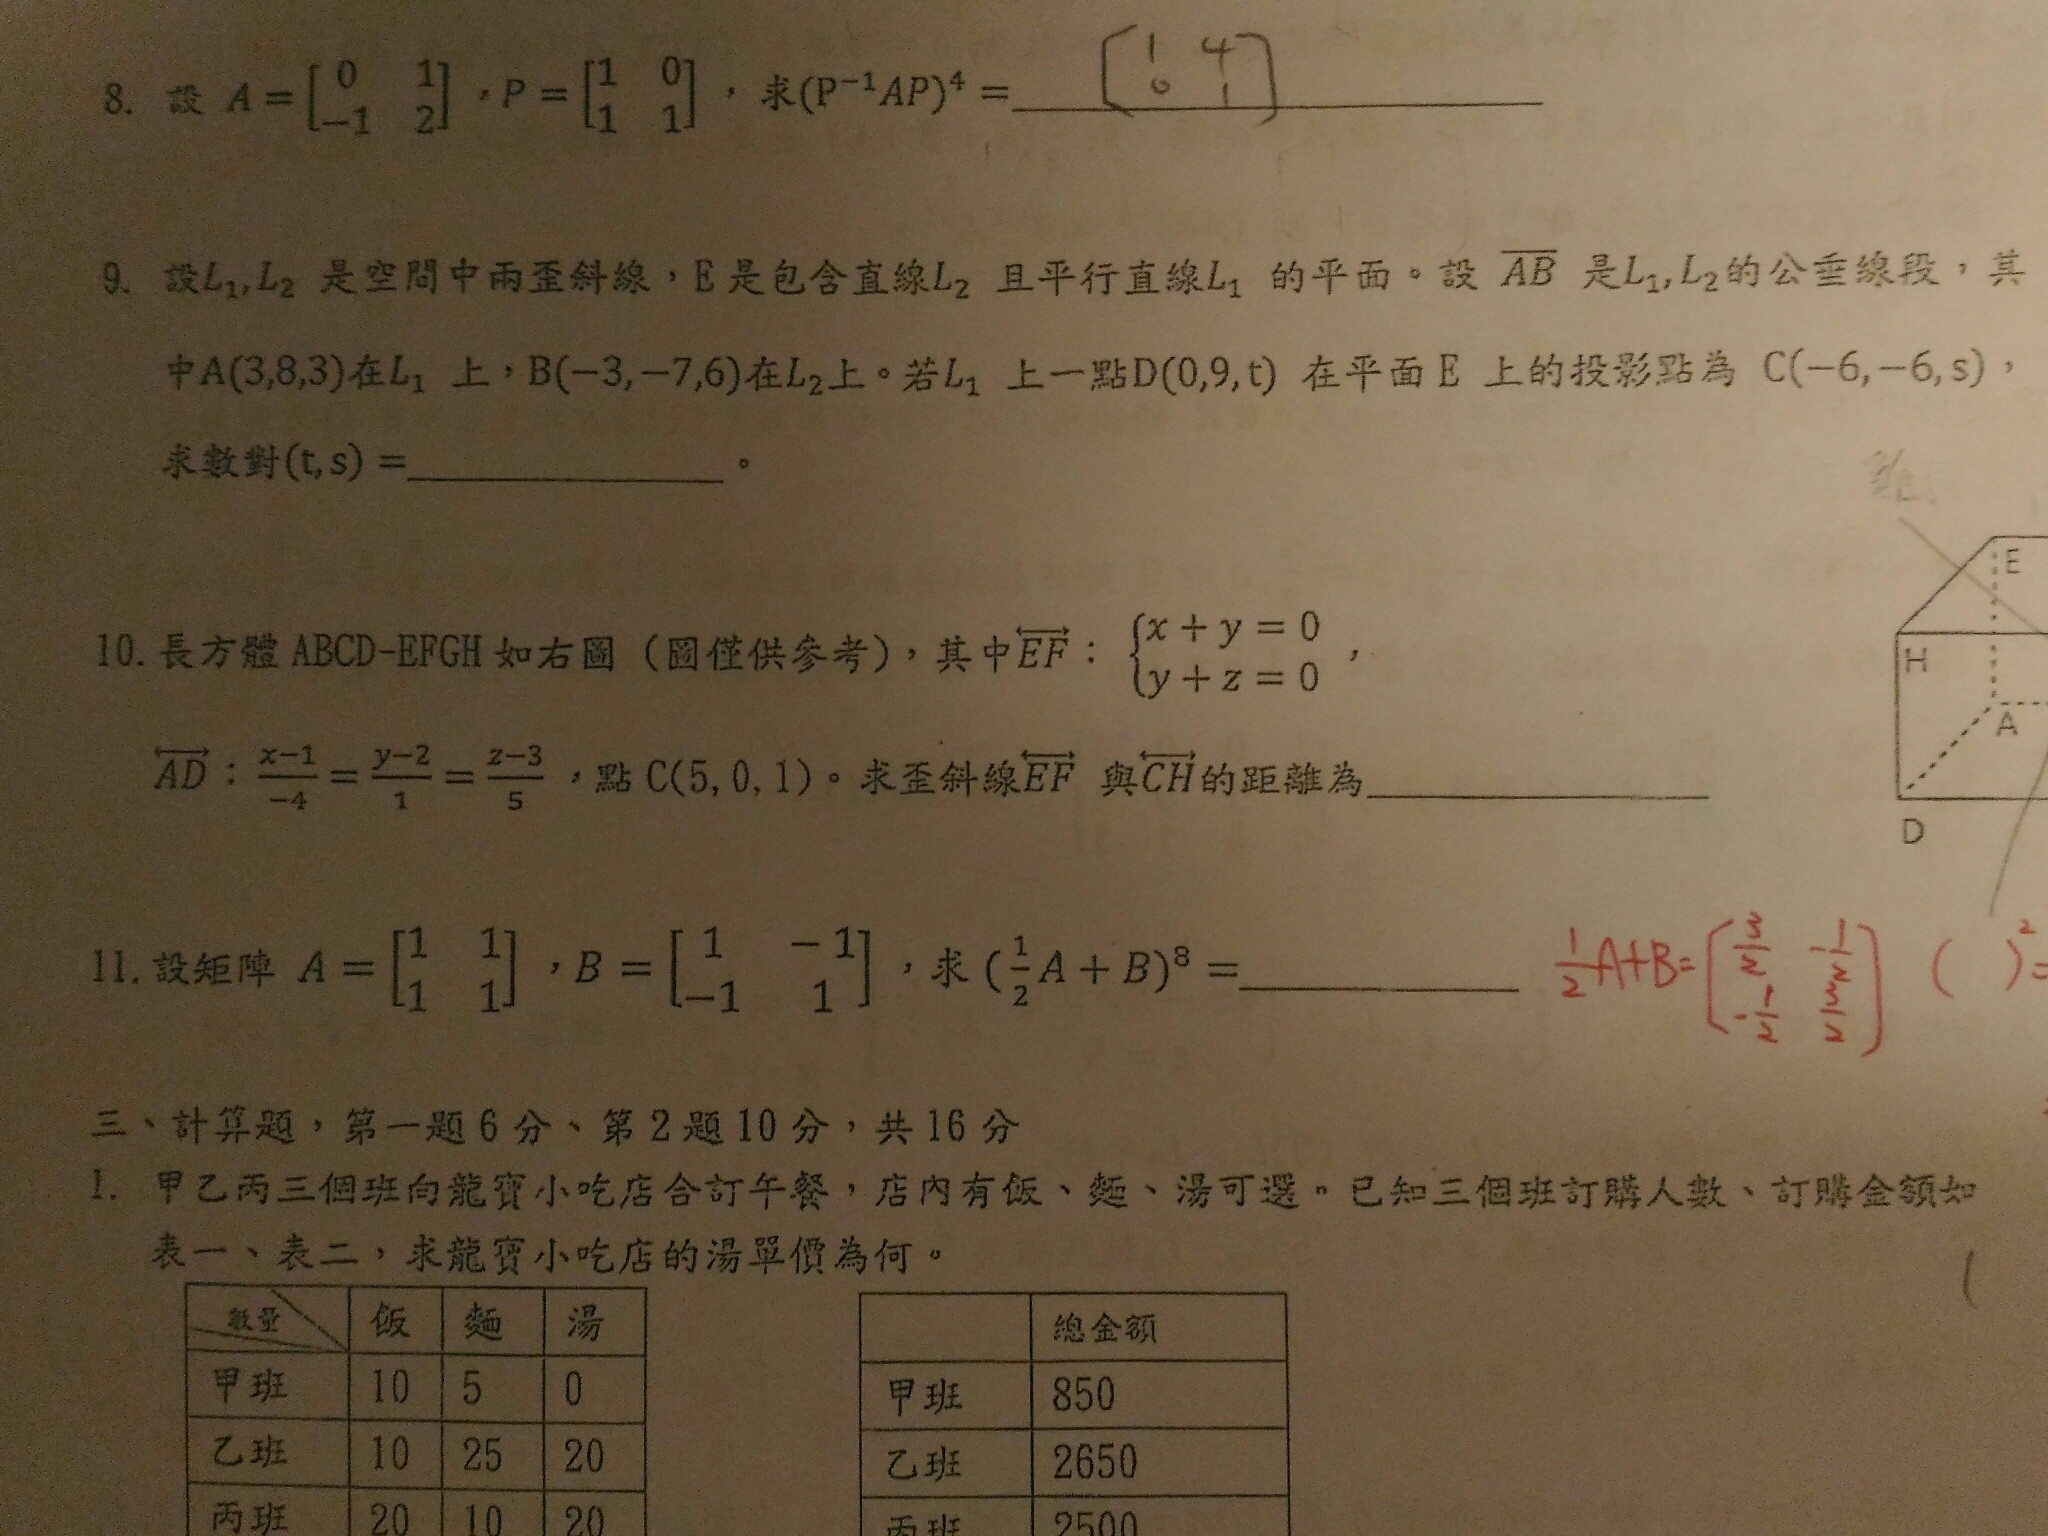 8. 設 A = [0 1 -1 2] ，P = [1 0 1 1] ， 求(P⁻¹AP)⁴ = [1 4 0 1]
9. 設L₁, L₂ 是空間中兩歪斜線，E 是包含直線L₂ 且平行直線L₁ 的平面。設 AB 是L₁, L₂的公垂線段，其
中A(3,8,3)在L₁ 上，B(−3,−7,6)在L₂上。若L₁ 上一點D(0,9,t) 在平面 E 上的投影點為 C(−6,−6,s)，
求數對(t,s) = 。
10. 長方體 ABCD-EFGH 如右圖（圖僅供參考），其中EF： {x + y = 0
y + z = 0 ，
AD： x−1/−4 = y−2/1 = z−3/5 ，點 C(5, 0, 1)。求歪斜線EF 與CH的距離為
E
H
A
D
11. 設矩陣 A = [1 1 1 1] ，B = [1 −1 −1 1] ，求 (1/2 A + B)⁸ = 1/2 A+B= [3/2 -1/2 -1/2 3/2] ( )² =
三、計算題，第一題 6 分、第 2 題 10 分，共 16 分
1. 甲乙丙三個班向龍寶小吃店合訂午餐，店內有飯、麵、湯可選。已知三個班訂購人數、訂購金額如
表一、表二，求龍寶小吃店的湯單價為何。
數量 飯 麵 湯
甲班 10 5 0
乙班 10 25 20
丙班 20 10 20
總金額
甲班 850
乙班 2650
丙班 2500